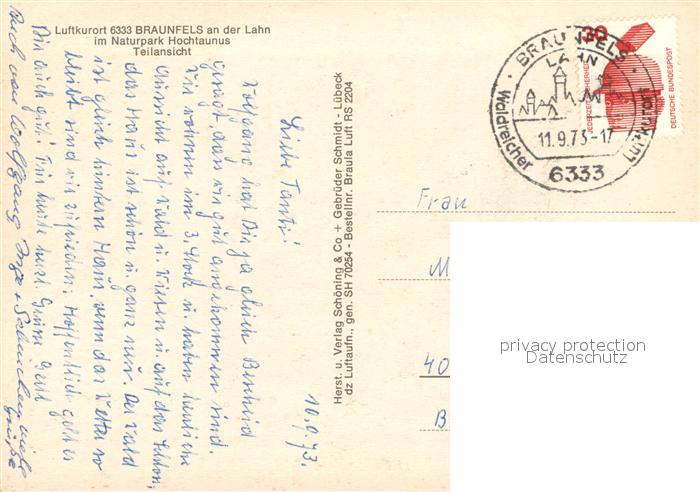 Luftkurort 6333 BRAUNFELS an der Lahn
im Naturpark Hochtaunus
Teilansicht
10.9.73.
Liebe Tanti!
Wolfgang hat Dir ja gleich Bescheid
gesagt, daß wir gut angekommen sind.
Wir wohnen im 3. Stock u. haben herrliche
Aussicht auf Wald u. Wiesen u. auf das Schloß,
das Haus ist schön u. ganz neu. Der Wald
ist gleich hinterm Haus, wenn das Wetter so
bleibt sind wir zufrieden. Hoffentlich geht es
Dir auch gut! Für heute herzl. Grüße
Auch von Wolfgang Inge + viele
Grüße
Herst. u. Verlag Schöning & Co + Gebrüder Schmidt - Lübeck
dz Luftaufn., gen. SH 70254 - Bestellnr. Braula Luft RS 2204
BRAUNFELS
LAHN
Waldreicher
Luftkurort
11.9.73-17
6333
30
JEDERZEIT SICHERHEIT
DEUTSCHE BUNDESPOST
Frau
M
40
B
privacy protection
Datenschutz